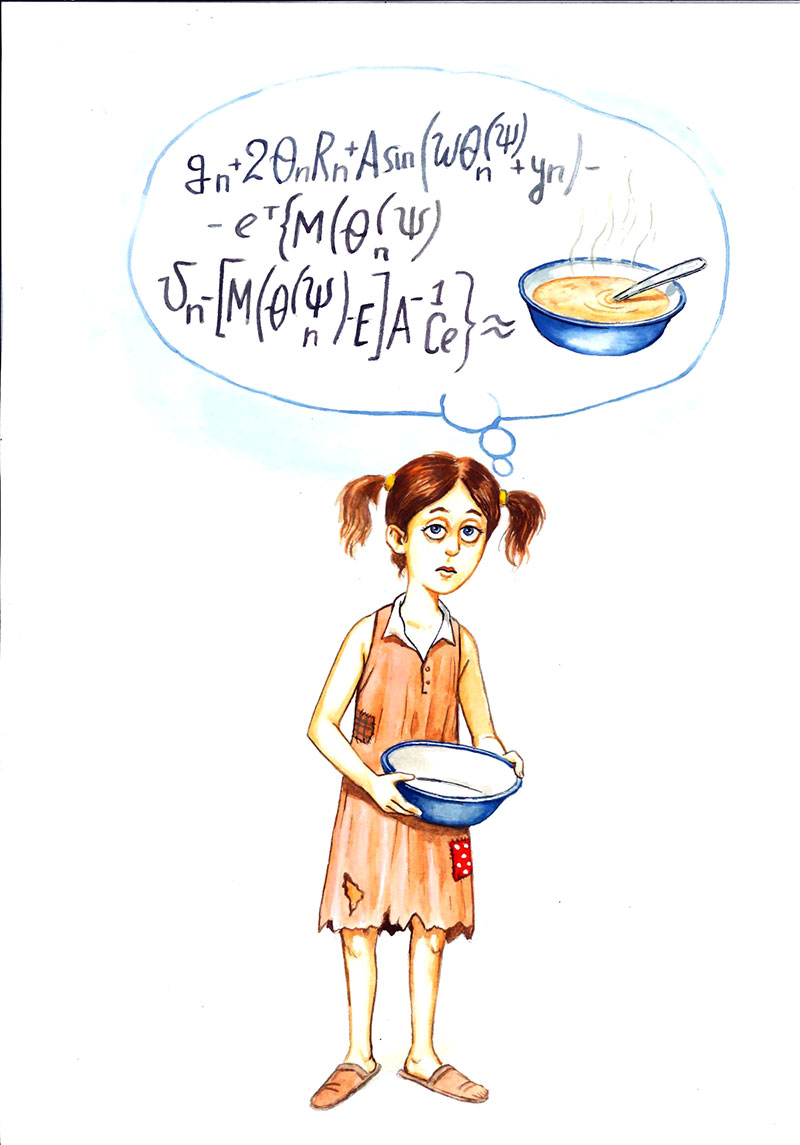 gn+2θnRn+A sin(wθn(ψ)+yn)-
- eᵀ{M(θn(ψ)
υn-[M(θn(ψ)-E]A-1Ce}≈